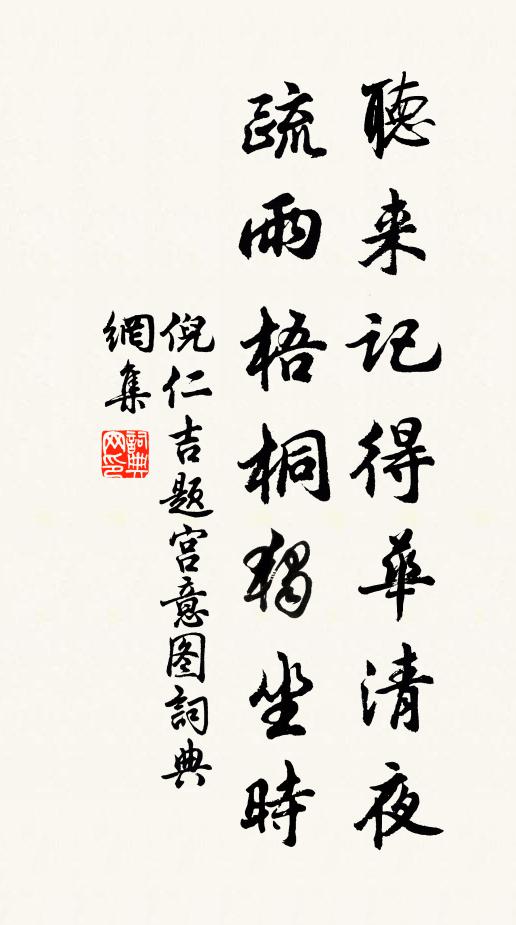 聽来記得華清夜
疏雨梧桐獨坐時
倪仁吉题宫意图詞典
網集
詞典网印